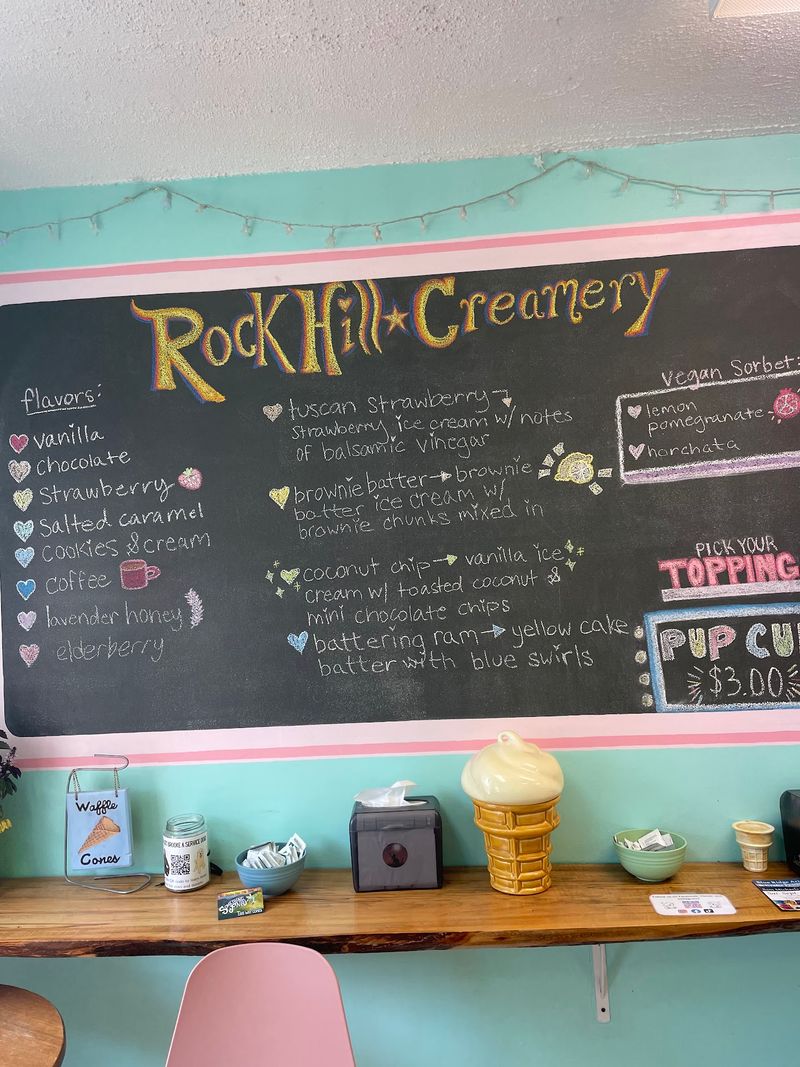 Rock Hill Creamery
flavors:
vanilla
chocolate
strawberry
salted caramel
cookies & cream
coffee
lavender honey
elderberry
tuscan strawberry →
strawberry ice cream w/ notes
of balsamic vinegar
brownie batter → brownie
batter ice cream w/
brownie chunks mixed in
coconut chip → vanilla ice
cream w/ toasted coconut &
mini chocolate chips
battering ram → yellow cake
batter with blue swirls
Vegan Sorbet:
lemon
pomegranate
horchata
PICK YOUR
TOPPING
PUP CU
$3.00
Waffle
Cones
A SERVICE